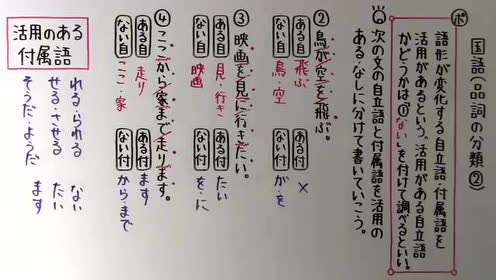 国語〈品詞の分類②〉
ポ
語形が変化する自立語・付属語を
活用があるという。活用がある自立語
かどうかは①「ない」を付けて調べるとよい!
次の文の自立語と付属語を活用の
ある・なしに分けて書いていこう。
②鳥が空を飛ぶ。
ある自 飛ぶ
ない自 鳥・空
ある付 ×
ない付 が・を
③映画を見に行きたい。
ある自 見・行き
ない自 映画
ある付 たい
ない付 を・に
④ここから家まで走ります。
ある自 走り
ない自 ここ・家
ある付 ます
ない付 から・まで
活用のある
付属語
れる・られる ない
せる・させる たい
そうだ・ようだ ます